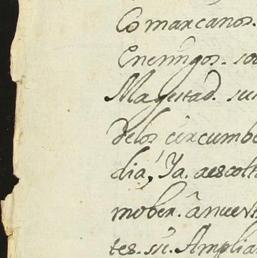 Comarcanos.
Enemigos. so
Magestad. su
delos circumbe
dia, Ya. aescolt
mober. à nuest
tes. si. Amplia